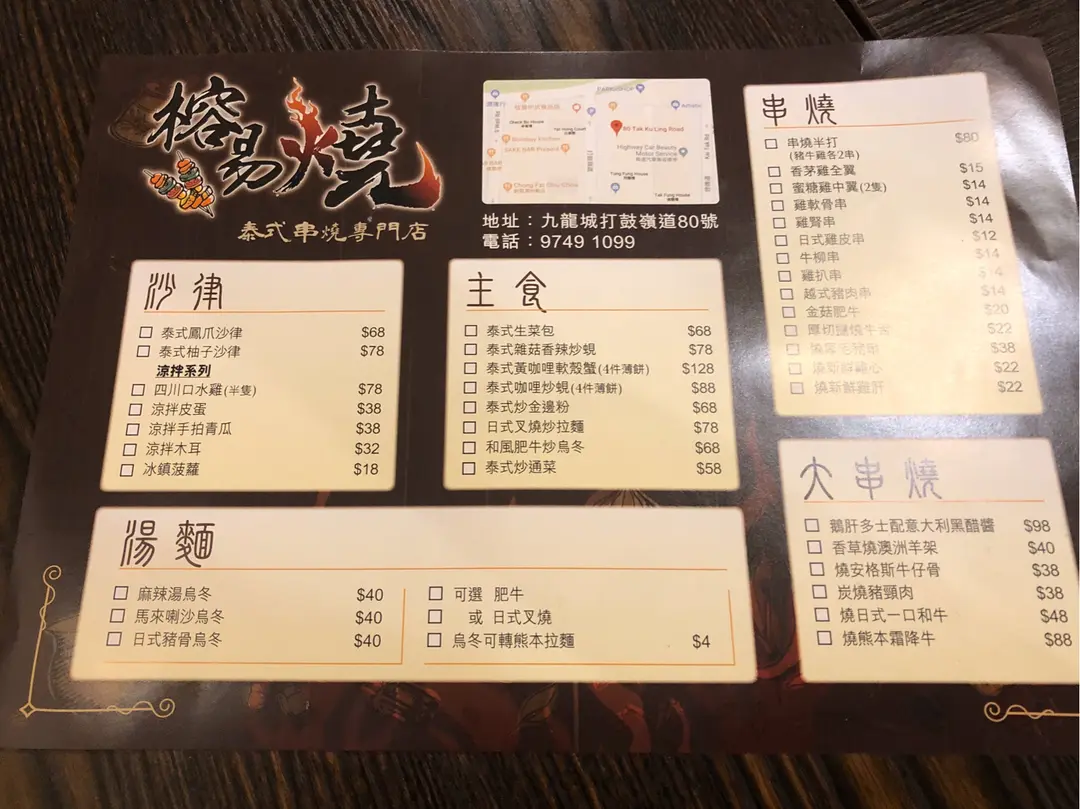 榕易燒
泰式串燒專門店
80 Tak Ku Ling Road
Highway Car Beauty
Motor Service
地址：九龍城打鼓嶺道80號
電話：9749 1099
沙律
泰式鳳爪沙律 $68
泰式柚子沙律 $78
涼拌系列
四川口水雞(半隻) $78
涼拌皮蛋 $38
涼拌手拍青瓜 $38
涼拌木耳 $32
冰鎮菠蘿 $18
主食
泰式生菜包 $68
泰式雜菇香辣炒蜆 $78
泰式黃咖哩軟殼蟹(4件薄餅) $128
泰式咖哩炒蜆(4件薄餅) $88
泰式炒金邊粉 $68
日式叉燒炒拉麵 $78
和風肥牛炒烏冬 $68
泰式炒通菜 $58
湯麵
麻辣湯烏冬 $40
馬來喇沙烏冬 $40
日式豬骨烏冬 $40
可選 肥牛
或 日式叉燒
烏冬可轉熊本拉麵 $4
串燒
串燒半打 $80
(豬牛雞各2串)
香茅雞全翼 $15
蜜糖雞中翼(2隻) $14
雞軟骨串 $14
雞腎串 $14
日式雞皮串 $12
牛柳串 $14
雞扒串 $14
越式豬肉串 $14
金菇肥牛 $20
厚切鹽燒牛舌 $22
$38
燒新鮮雞心 $22
燒新鮮雞肝 $22
大串燒
鵝肝多士配意大利黑醋醬 $98
香草燒澳洲羊架 $40
燒安格斯牛仔骨 $38
炭燒豬頸肉 $38
燒日式一口和牛 $48
燒熊本霜降牛 $88